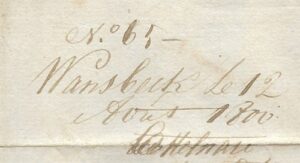 N.o 65 —
Wansbeck le 12
Aout 1800.